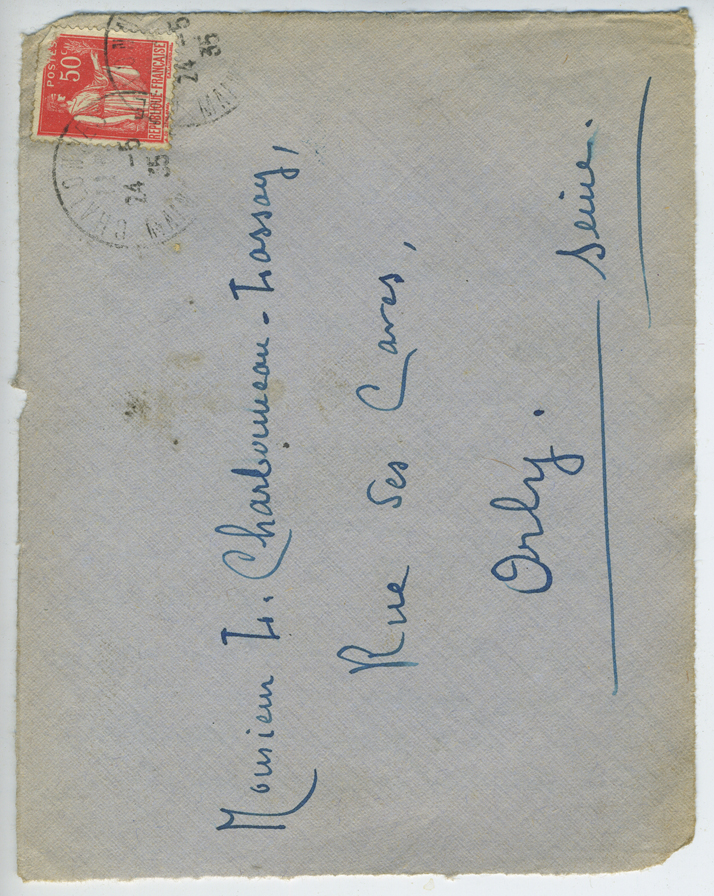 POSTES
50c
REPUBLIQUE-FRANÇAISE
24-5
35
24-5
35
Monsieur L. Charbonneau-Lassay,
Rue des Caves,
Orly. Seine.